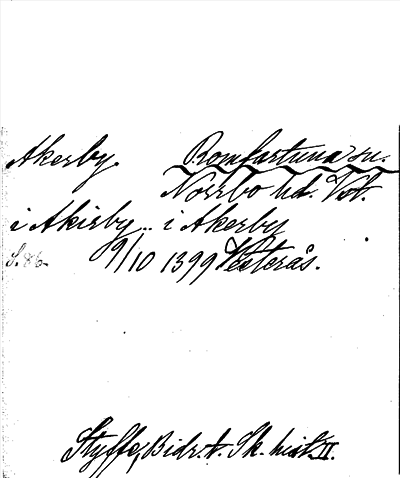 Åkerby. Romfartuna sn.
Norrbo hd. Vstm.
i Akirby... i Akerby
S. 86. 9/10 1399 Westerås.
Styffe, Bidr. t. Sk. hist. II.